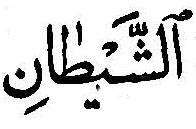 ٱلشَّيْطَانِ